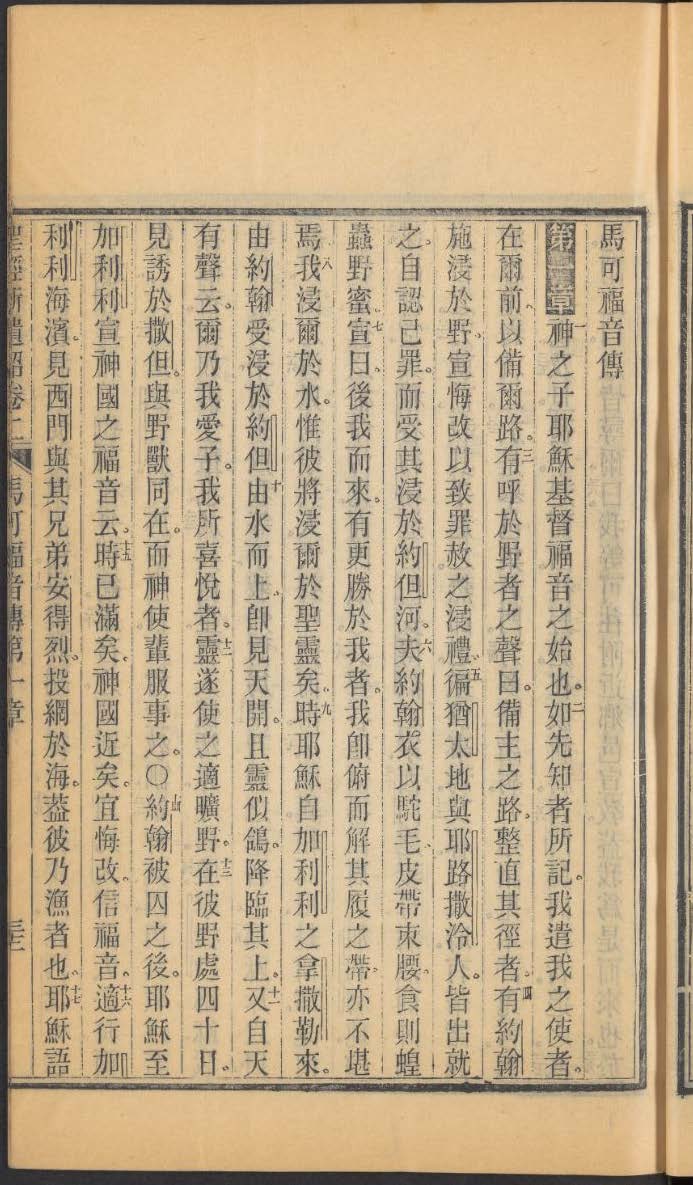 馬可福音傳
第一章一神之子耶穌基督福音之始也。二如先知者所記。我遣我之使者。
在爾前、以備爾路。三有呼於野者之聲曰。備主之路。整直其徑者。四有約翰
施浸於野。宣悔改以致罪赦之浸禮。五徧猶太地與耶路撒冷人。皆出就
之。自認己罪。而受其浸於約但河。六夫約翰衣以駝毛、皮帶束腰。食則蝗
蟲野蜜。七宣曰。後我而來。有更勝於我者。我卽俯而解其履之帶。亦不堪
焉。八我浸爾於水。惟彼將浸爾於聖靈矣。九時耶穌自加利利之拿撒勒來。
由約翰受浸於約但。十由水而上、卽見天開。且靈似鴿。降臨其上。十一又自天
有聲云。爾乃我愛子。我所喜悅者。十二靈遂使之適曠野。十三在彼野處四十日。
見誘於撒但。與野獸同在。而神使輩服事之。○十四約翰被囚之後。耶穌至
加利利。宣神國之福音云。十五時已滿矣。神國近矣。宜悔改。信福音。十六適行加
利利海濱。見西門與其兄弟安得烈。投網於海。葢彼乃漁者也。十七耶穌語
聖經新遺詔卷二 馬可福音傳第一章